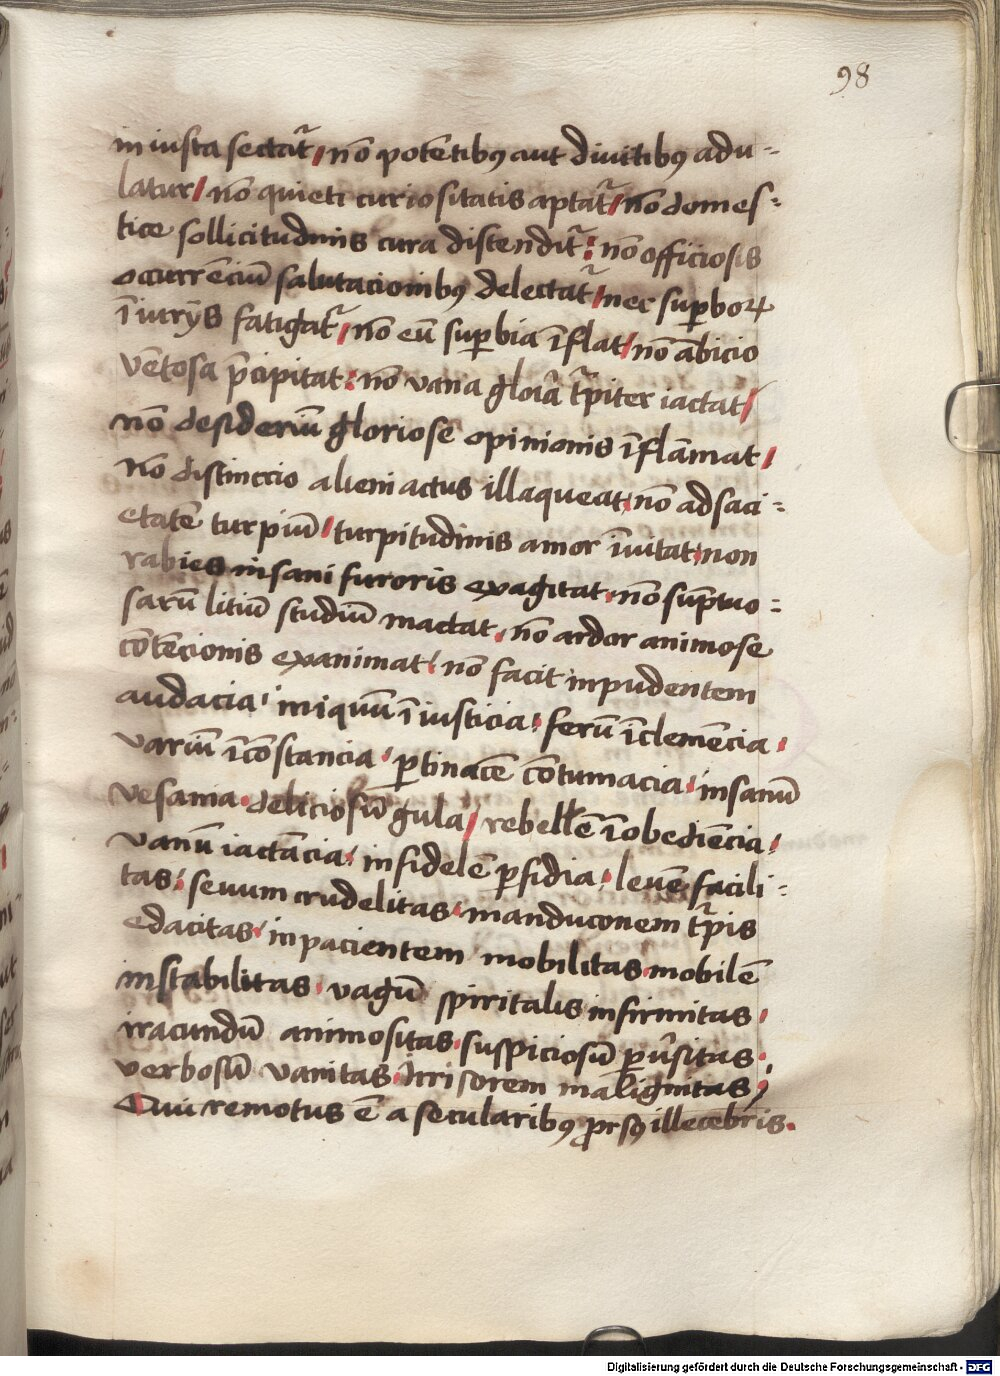 98
in iusta sectat᷑ / nō potētibꝰ aut diuitibꝰ adu⸗
latur / nō quieti curiositatis aptat᷑ / nō domes⸗
tice sollicitudinis cura distendit᷑ : nō officiosis
occurrēciū salutacionibꝰ delectat᷑ / nec suꝑboꝝ
ī iurijs fatigat᷑ / nō eū suꝑbia īflat / nō ābicio
vētosa p̄cipitat : nō vana glōia t᷑piter iactat /
nō desideriū gloriose opinionis īflāmat /
nō distinccio alieni actus illaqueat , nō ad saci⸗
etatē turpiū / turpitudinis amor īuitat , non
rabies insani furoris exagitat , nō sūptuo⸗
sarū litiū studiū mactat , nō ardor animose
cōtēcionis exanimat : nō facit inpudentem
audacia · iniquū īiusticia : ferū īclemēcia ·
variū īcōstancia · ꝑtinacē cōtumacia · insanū
vesania · deliciosū gula / rebellē īobediēcia :
vanū iactācia : infidelē ꝑfidia · leuē facili⸗
tas : seuum crudelitas · manduconem t᷑pis
edacitas · inpacientem mobilitas · mobilē
instabilitas · vagū spiritalis infirmitas ·
iracundū animositas · suspiciosū ꝑūsitas :
verbosū vanitas · Irrisorem malignitas ;
Qui remotus ē a secularibꝰ ꝓrsꝰ illecebris .
Digitalisierung gefördert durch die Deutsche Forschungsgemeinschaft - DFG